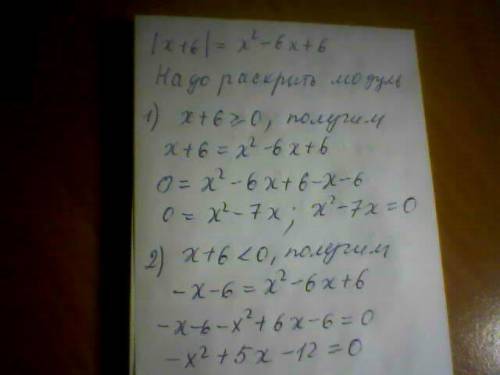 |x+6| = x²-6x+6
Надо раскрить модуль
1) x+6≥0, получим
x+6 = x²-6x+6
0 = x²-6x+6-x-6
0 = x²-7x; x²-7x=0
2) x+6<0, получим
-x-6 = x²-6x+6
-x-6-x²+6x-6=0
-x²+5x-12=0